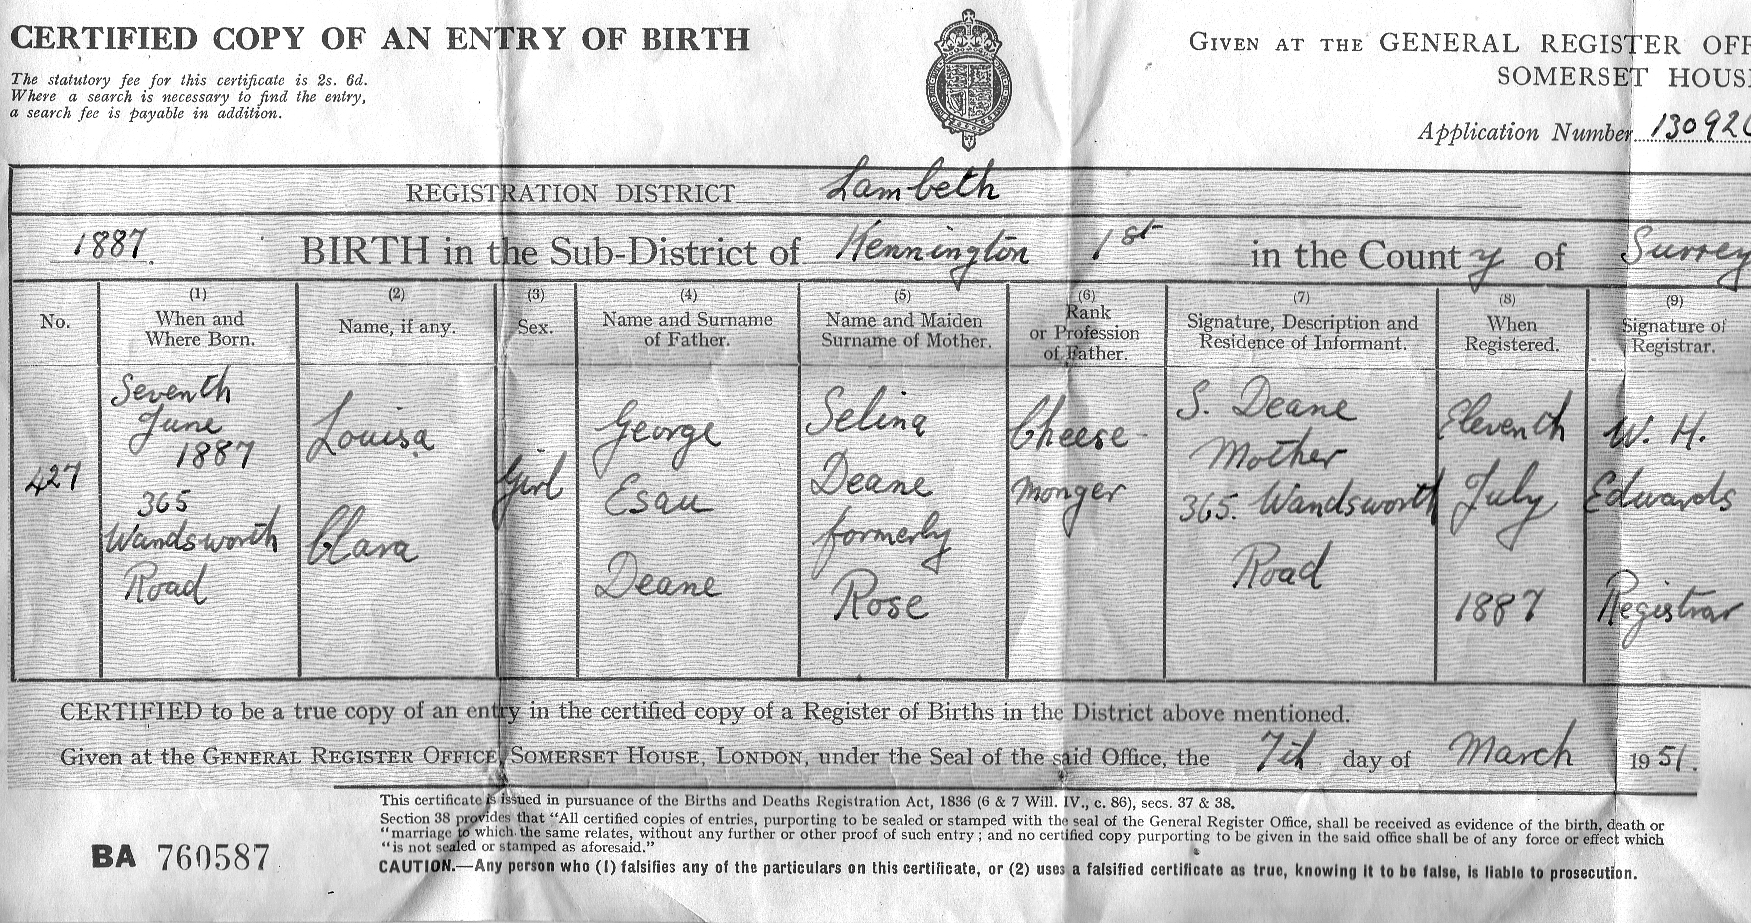 CERTIFIED COPY OF AN ENTRY OF BIRTH
The statutory fee for this certificate is 2s. 6d.
Where a search is necessary to find the entry,
a search fee is payable in addition.
GIVEN AT THE GENERAL REGISTER OFF
SOMERSET HOUS
Application Number 13092
REGISTRATION DISTRICT Lambeth
1887. BIRTH in the Sub-District of Kennington 1st in the County of Surrey
No.
(1)
When and
Where Born.
(2)
Name, if any.
(3)
Sex.
(4)
Name and Surname
of Father.
(5)
Name and Maiden
Surname of Mother.
(6)
Rank
or Profession
of Father.
(7)
Signature, Description and
Residence of Informant.
(8)
When
Registered.
(9)
Signature of
Registrar.
427
Seventh
June
1887
365
Wandsworth
Road
Louisa
Clara
Girl
George
Esau
Deane
Selina
Deane
formerly
Rose
Cheese-
monger
S. Deane
Mother
365. Wandsworth
Road
Eleventh
July
1887
W. H.
Edwards
Registrar
CERTIFIED to be a true copy of an entry in the certified copy of a Register of Births in the District above mentioned.
Given at the GENERAL REGISTER OFFICE, SOMERSET HOUSE, LONDON, under the Seal of the said Office, the 7th day of March 1951.
This certificate is issued in pursuance of the Births and Deaths Registration Act, 1836 (6 & 7 Will. IV., c. 86), secs. 37 & 38.
Section 38 provides that "All certified copies of entries, purporting to be sealed or stamped with the seal of the General Register Office, shall be received as evidence of the birth, death or
"marriage to which the same relates, without any further or other proof of such entry; and no certified copy purporting to be given in the said office shall be of any force or effect which
"is not sealed or stamped as aforesaid."
BA 760587
CAUTION.—Any person who (1) falsifies any of the particulars on this certificate, or (2) uses a falsified certificate as true, knowing it to be false, is liable to prosecution.